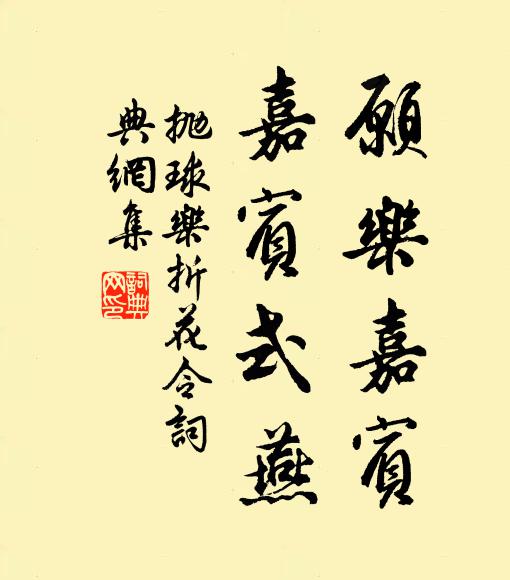 願樂嘉賓
嘉賓式燕
拋球樂折花令詞
典網集
詞典
网印